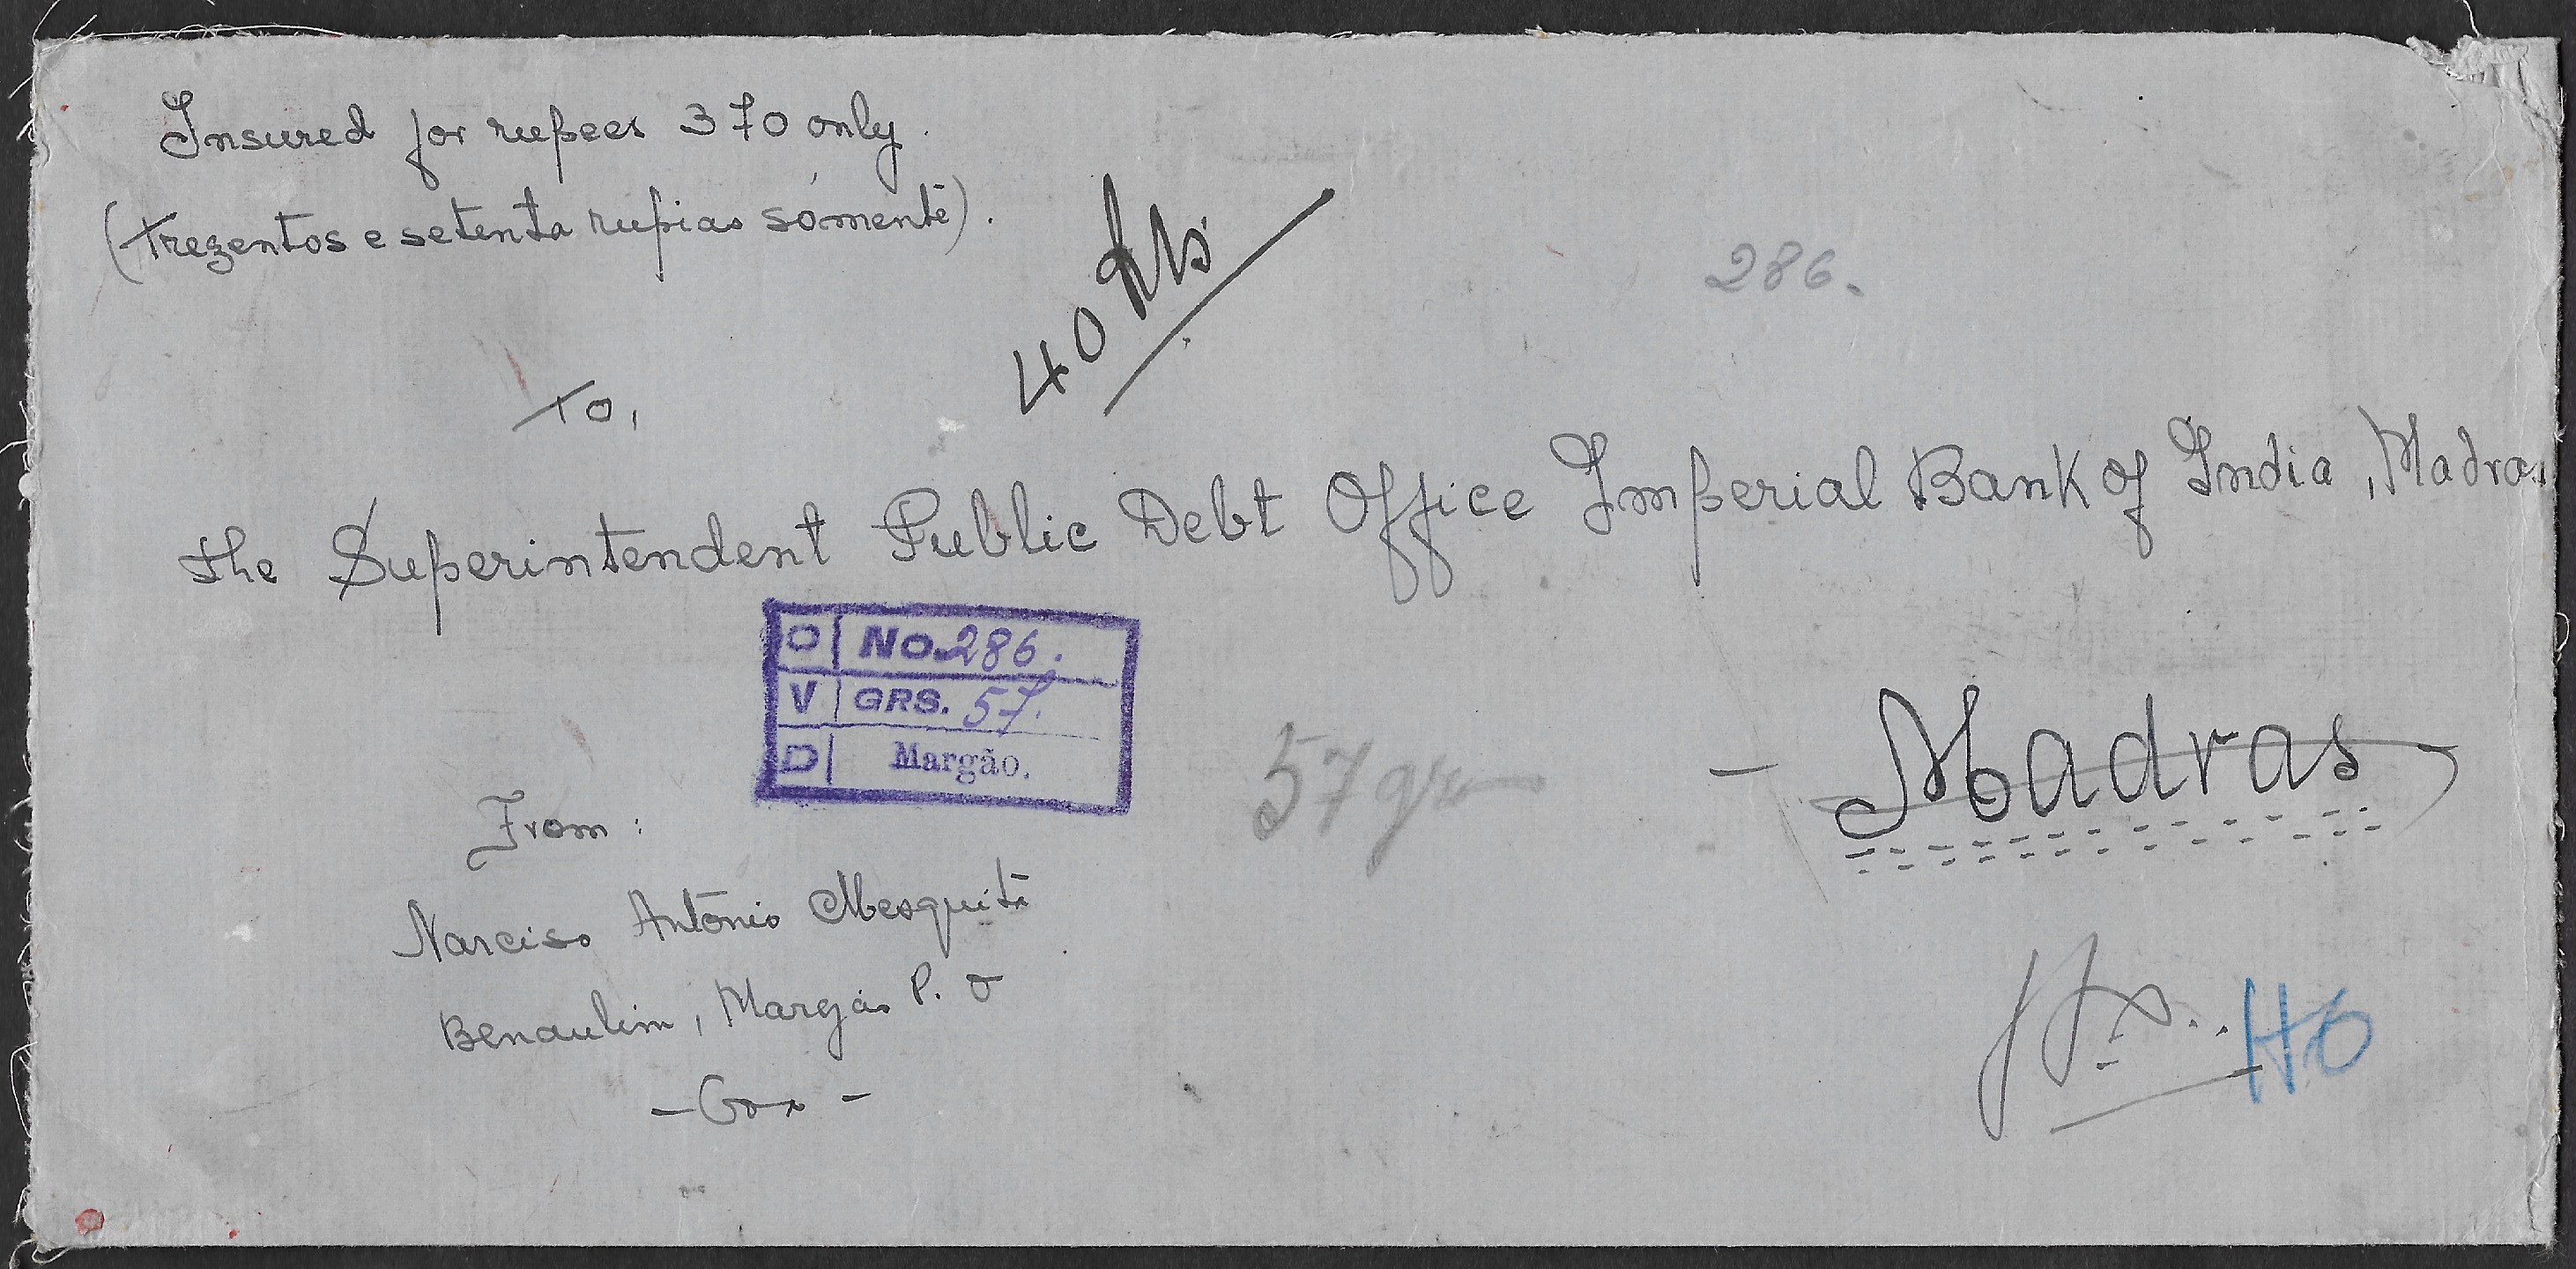 Insured for rupees 370 only.
(Trezentos e setenta rupias sómente).
40
286.
To,
the Superintendent Public Debt Office Imperial Bank of India, Madras
O NO. 286.
V GRS. 57.
D Margão.
57 gr
- Madras
From:
Narciso António Mesquita
Benaulim, Margão P. O
- Goa -
HO